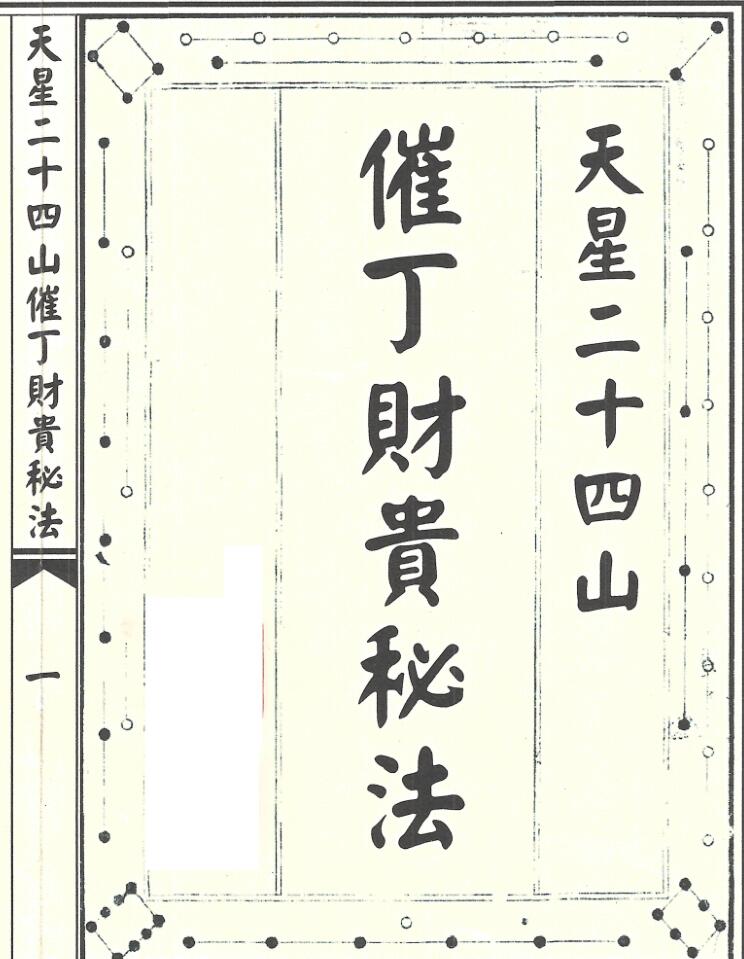 天星二十四山
催丁財貴秘法
天星二十四山催丁財貴秘法
一